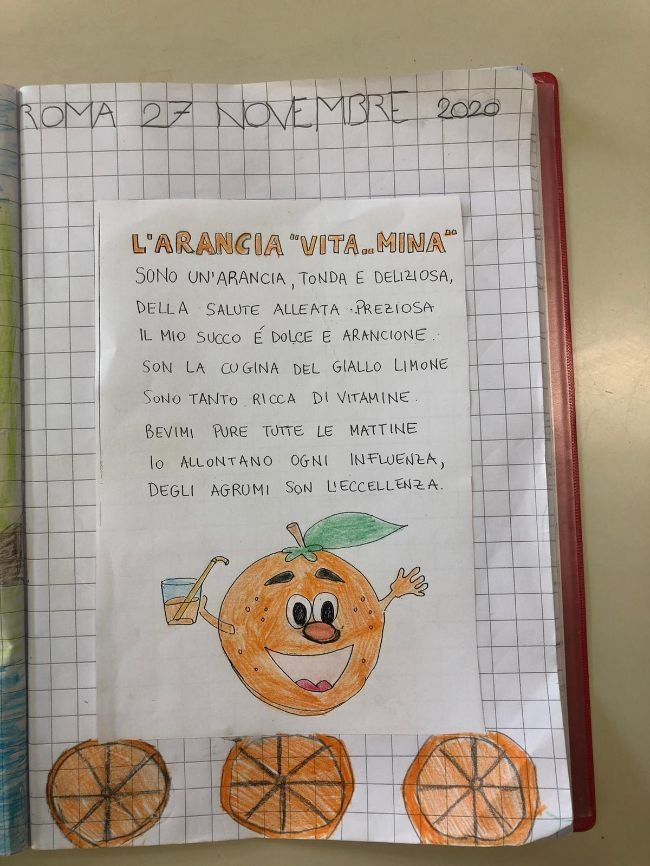 ROMA 27 NOVEMBRE 2020
L'ARANCIA "VITA..MINA"
SONO UN'ARANCIA, TONDA E DELIZIOSA,
DELLA SALUTE ALLEATA PREZIOSA
IL MIO SUCCO É DOLCE E ARANCIONE.
SON LA CUGINA DEL GIALLO LIMONE
SONO TANTO RICCA DI VITAMINE.
BEVIMI PURE TUTTE LE MATTINE
IO ALLONTANO OGNI INFLUENZA,
DEGLI AGRUMI SON L'ECCELLENZA.